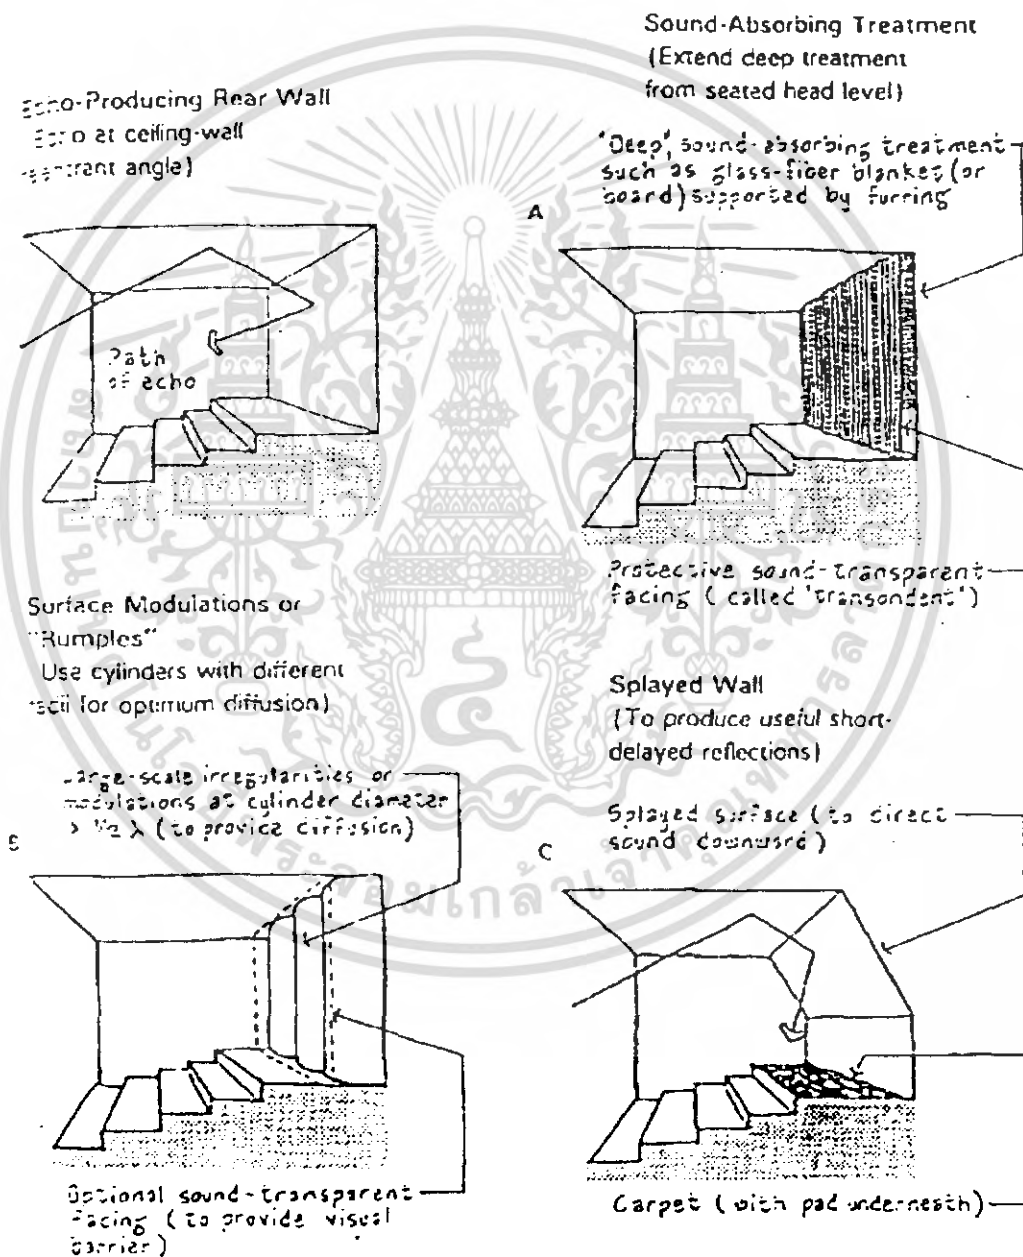 Echo-Producing Rear Wall
Echo at ceiling-wall
reentrant angle)
Path
of echo
Sound-Absorbing Treatment
(Extend deep treatment
from seated head level)
"Deep", sound-absorbing treatment
such as glass-fiber blanket (or
board) supported by furring
A
Protective sound-transparent
facing (called "transondent")
Surface Modulations or
"Rumples"
Use cylinders with different
radii for optimum diffusion)
Large-scale irregularities or
modulations at cylinder diameter
> ½ λ (to provide diffusion)
B
Optional sound-transparent
facing (to provide visual
barrier)
Splayed Wall
(To produce useful short-
delayed reflections)
Splayed surface (to direct
sound downward)
C
Carpet (with pad underneath)